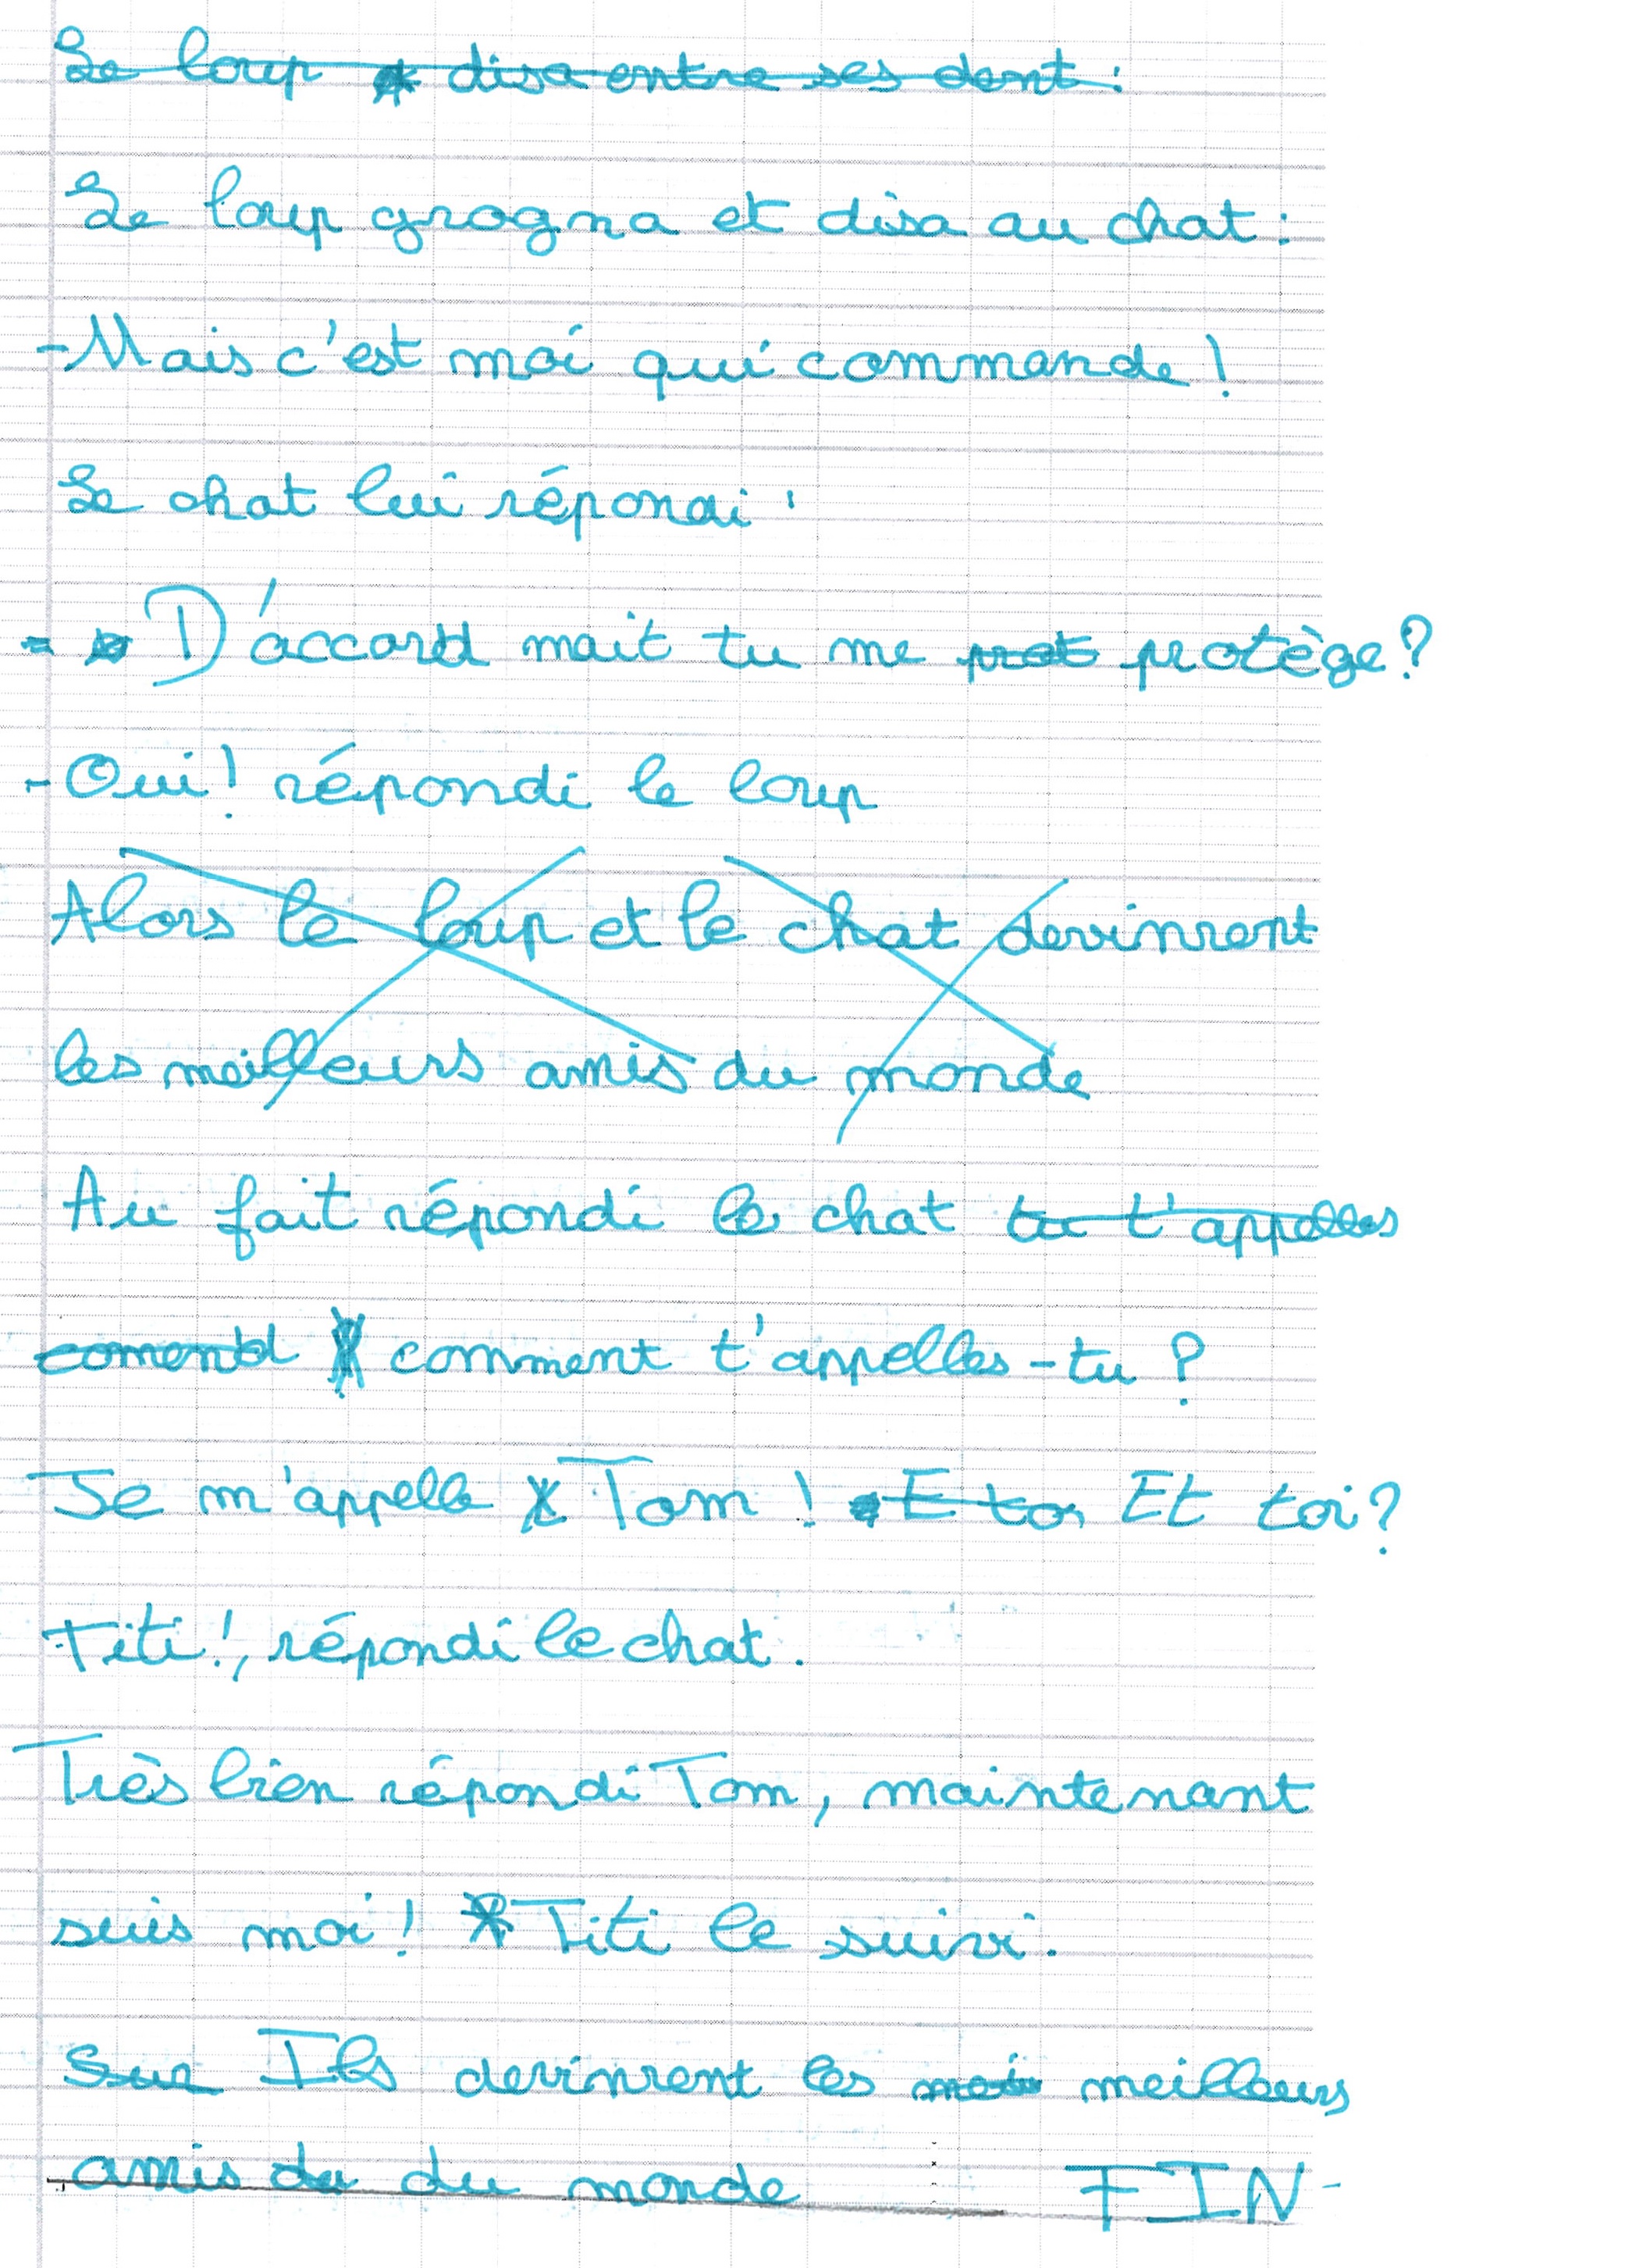 Le loup disa entre ses dent :
Le loup grogna et disa au chat :
- Mais c'est moi qui commande !
Le chat lui répondi :
- D'accord mait tu me prot protège ?
- Oui ! répondi le loup
Alors le loup et le chat devinrent
les meilleurs amis du monde
Au fait répondi le chat tu t'appelles
coment comment t'appelles-tu ?
Je m'appelle Tom ! E toi Et toi ?
Titi !, répondi le chat.
Très bien répondi Tom, maintenant
suis moi ! Titi le suivi.
Sur Ils devinrent les meilleurs
amis du du monde FIN